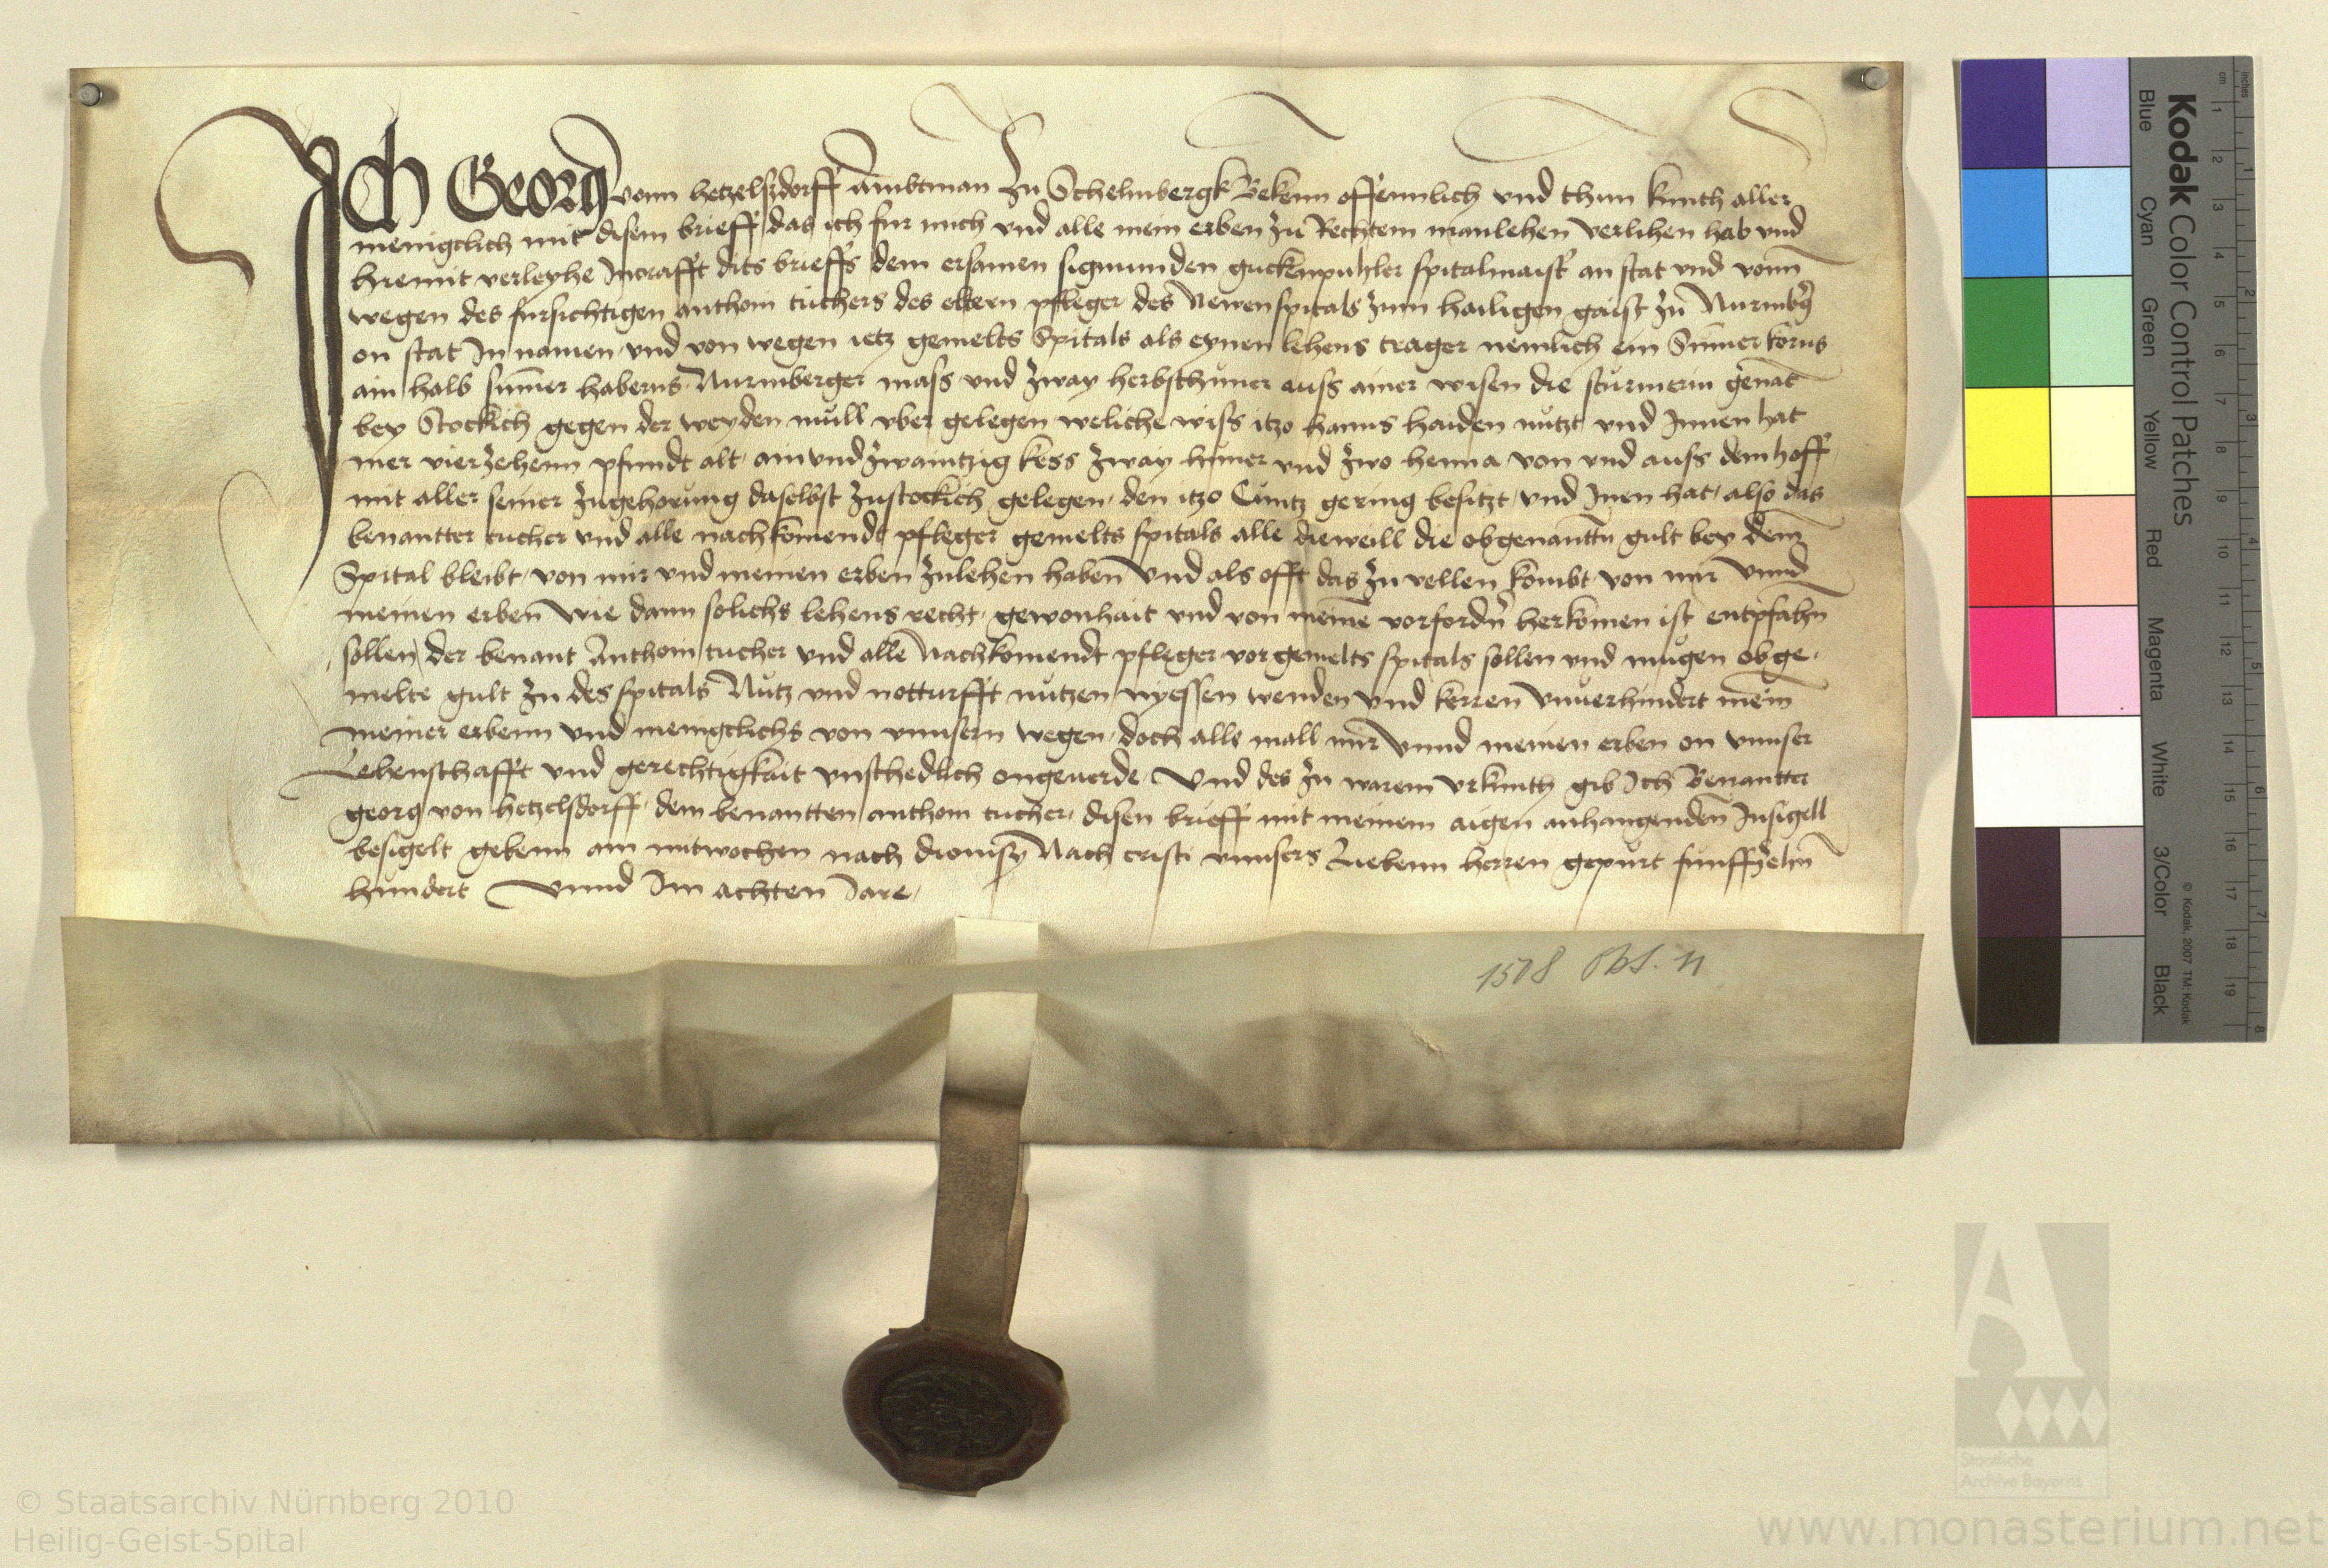 Ich Georg vonn hetzelsdorff Ambtman zu Schelmbergk Bekenn offennlich vnd thun kunth aller
menigclich mit disem brieff das ich fur mich vnd alle mein erben zu Rechtem manlehen verlihen hab vnd
hiemit verleyhe Incrafft dits brieffs dem ersamen sigmunden guckenpuhler spitalmaist an stat vnd vonn
wegen des fursichtigen anthoni tuchers des eltern pfleger des Newen spitals zum hailigen gaist zu Nurmbg
on stat In namen vnd von wegen ietz gemelts Spitals als eynen lehens trager nemlich ein Sumer korns
ain halb sumer haberns Nurmberger mass vnd zway herbsthuner auss ainer wisen die sturmerin genat
bey Stockich gegen der weyden mull vber gelegen weliche wiss itzo hanns haiden nutzt vnd Innen hat
mer vierzehenn pfundt alt ainvndzwaintzig kess zway huner vnd zwo henna von vnd auss dem hoff
mit aller seiner zugehorung daselbst zustockich gelegen den itzo Cuntz gering besitzt vnd Inen hat also das
benantter tucher vnd alle nachkomendt pfleger gemelts spitals alle dieweill die obgenanttn gult bey dem
Spital bleibt von mir vnd meinen erben zulehen haben Vnd als offt das zu vellen kombt von mir Vnnd
meinen erben wie dann solichs lehens recht gewonhait vnd von meine vorfordn herkomen ist entpfahn
sollen der benant Anthoni tucher vnd alle Nachkomendt pfleger vorgemelts spitals sollen vnd mugen obge
melte gult zu des spitals Nutz vnd notturfft nutzen nyessen wenden vnd kerren vnuerhindert mein
meiner erbenn vnd menigclichs von vnnsern wegen doch alle mall mir Vnnd meinen erben on vnnser
Lehenschafft vnd gerechtigkait vnschedlich ongeuerde Vnd des zu warem vrkunth gib Ich Benantter
georg von hetzelsdorff dem benantten anthoni tucher disen brieff mit meinem aigen anhangenden Insigell
besigelt gebenn am mitwochen nach dionisy Nach cristi vnnsers Liebenn herren gepurt funffzehn
hundert Vnnd Im achten Jare
1508 Okt. 11
Kodak Color Control Patches
Blue Cyan Green Yellow Red Magenta White 3/Color Black
© Kodak, 2007 TM: Kodak
cm 1 2 3 4 5 6 7 8 9 10 11 12 13 14 15 16 17 18 19
inches 1 2 3 4 5 6 7 8
Staatliche
Archive Bayerns
© Staatsarchiv Nürnberg 2010
Heilig-Geist-Spital
www.monasterium.net